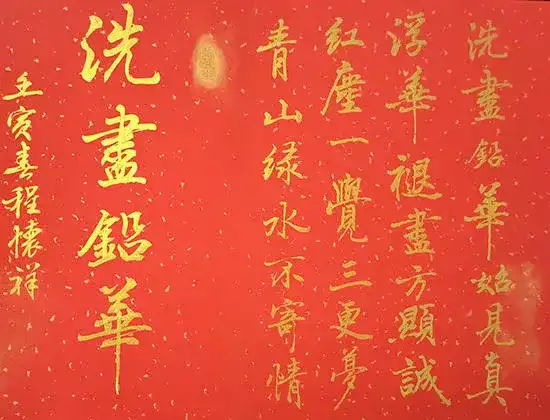 洗盡鉛華始見真
浮華褪盡方顯誠
红塵一覺三更夢
青山绿水不寄情
洗盡鉛華
壬寅春程懷祥